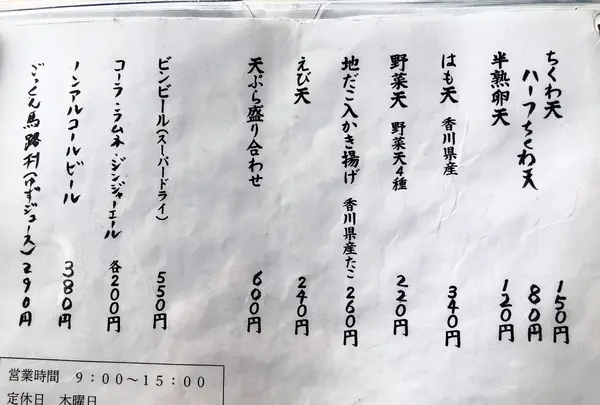 ちくわ天 150円
ハーフちくわ天 80円
半熟卵天 120円
はも天 香川県産 340円
野菜天 野菜天4種 220円
地だこ入かき揚げ 香川県産たこ 260円
えび天 240円
天ぷら盛り合わせ 600円
ビンビール(スーパードライ) 550円
コーラ・ラムネ・ジンジャーエール 各200円
ノンアルコールビール 380円
ごっくん馬路村(ゆずジュース) 290円
営業時間 9:00～15:00
定休日 木曜日